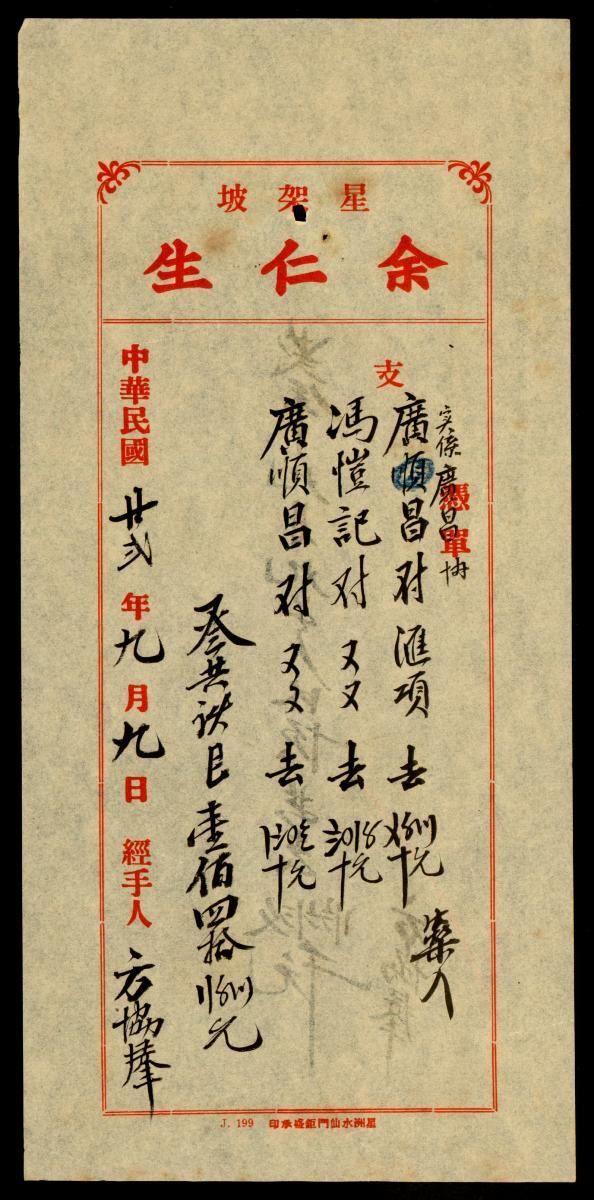 星架坡
余仁生
支憑單
实係廣昌
廣順昌对滙項去
馮愷記对又又去
廣順昌对又又去
叁共訞艮壹佰四拾
中華民國廿弍年九月九日 經手人 方協
星洲水仙門鉅盛承印 J. 199